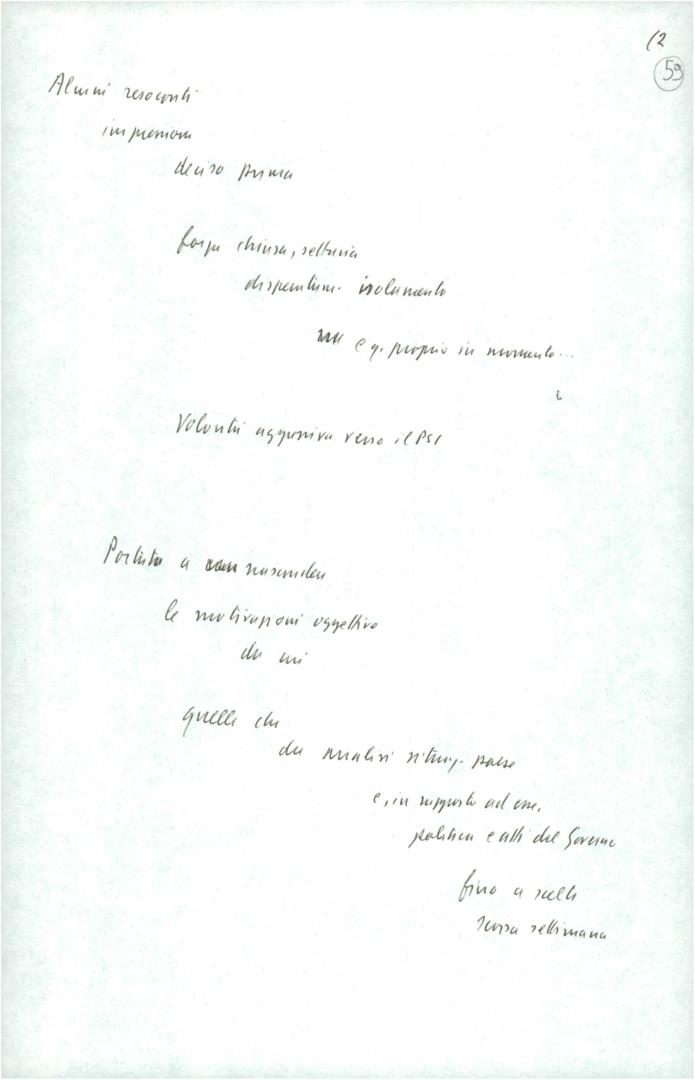 12
59
Alcuni resoconti
impressione
deciso prima
forza chiusa, settaria
isolamento
e q. proprio in momento...
Volontà aggressiva verso il PSI
Portato a nascondere
le motivazioni oggettive
da cui
quelle che
da analisi situaz. paese
e, in rapporto ad esse,
politica e atti del Governo
fino a scelte
scorsa settimana